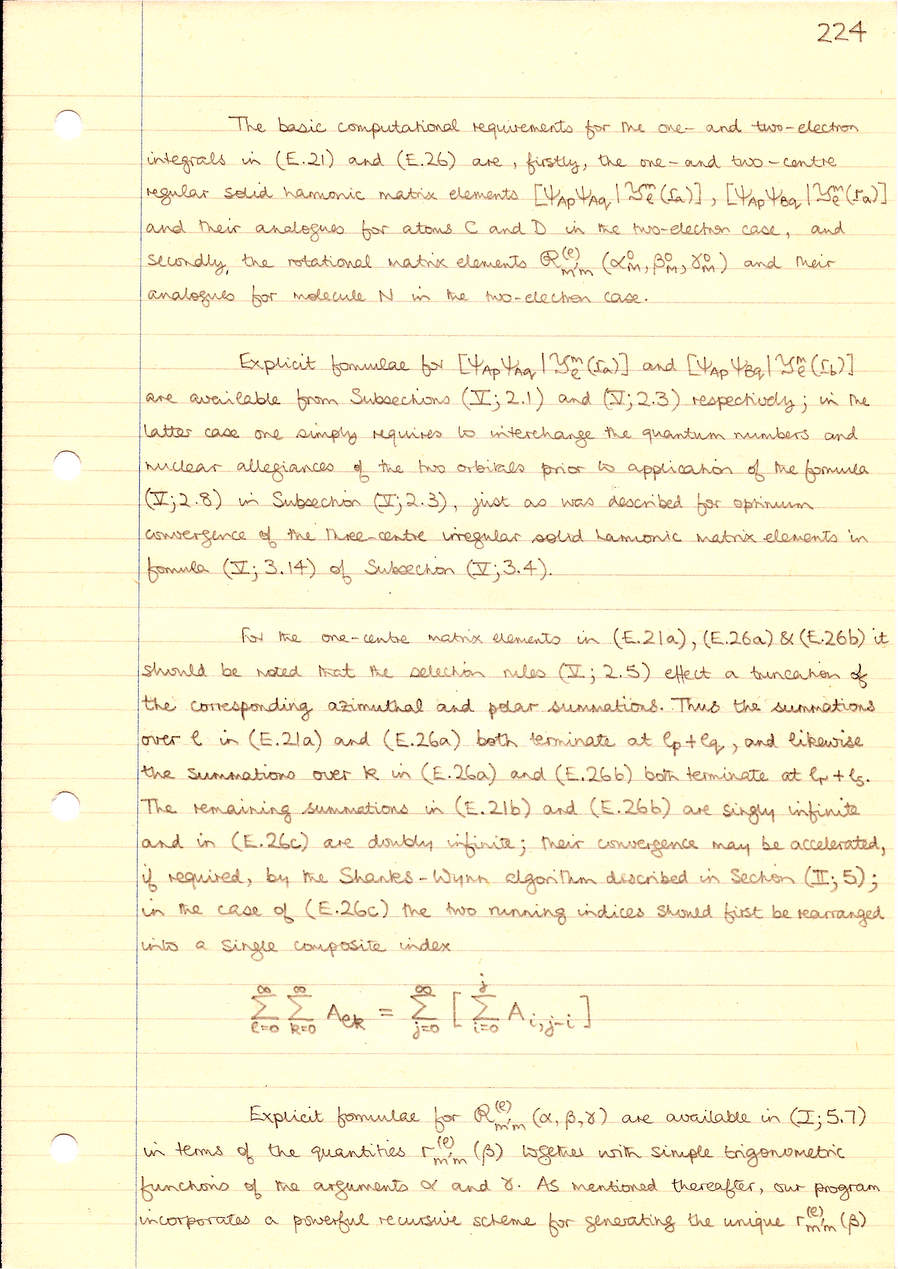 224
The basic computational requirements for the one- and two-electron
integrals in (E.21) and (E.26) are, firstly, the one- and two-centre
regular solid harmonic matrix elements [ΨApΨAq|𝒴ℓᵐ(r̲a)], [ΨApΨBq|𝒴ℓᵐ(r̲a)]
and their analogues for atoms C and D in the two-electron case, and
secondly, the rotational matrix elements ℛ⁽ℓ⁾m′m (α⁰M, β⁰M, γ⁰M) and their
analogues for molecule N in the two-electron case.
Explicit formulae for [ΨApΨAq|𝒴ℓᵐ(r̲a)] and [ΨApΨBq|𝒴ℓᵐ(r̲b)]
are available from Subsections (V; 2.1) and (V; 2.3) respectively; in the
latter case one simply requires to interchange the quantum numbers and
nuclear allegiances of the two orbitals prior to application of the formula
(V; 2.8) in Subsection (V; 2.3), just as was described for optimum
convergence of the three-centre irregular solid harmonic matrix elements in
formula (V; 3.14) of Subsection (V; 3.4).
For the one-centre matrix elements in (E.21a), (E.26a) & (E.26b) it
should be noted that the selection rules (V; 2.5) effect a truncation of
the corresponding azimuthal and polar summations. Thus the summations
over ℓ in (E.21a) and (E.26a) both terminate at ℓp+ℓq, and likewise
the summations over k in (E.26a) and (E.26b) both terminate at ℓr+ℓs.
The remaining summations in (E.21b) and (E.26b) are singly infinite
and in (E.26c) are doubly infinite; their convergence may be accelerated,
if required, by the Shanks-Wynn algorithm described in Section (II; 5);
in the case of (E.26c) the two running indices should first be rearranged
into a single composite index
∑ℓ=0^∞ ∑k=0^∞ Aℓk = ∑j=0^∞ [ ∑i=0^j A i,j-i ]
Explicit formulae for ℛ⁽ℓ⁾m′m (α, β, γ) are available in (I; 5.7)
in terms of the quantities r⁽ℓ⁾m′m (β) together with simple trigonometric
functions of the arguments α and γ. As mentioned thereafter, our program
incorporates a powerful recursive scheme for generating the unique r⁽ℓ⁾m′m (β)